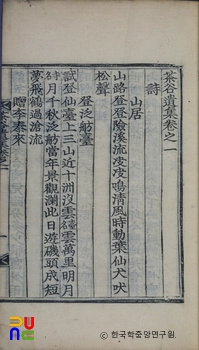 茶谷遺集卷之一
詩
山居
山路登登險溪流㴆㴆鳴淸風時動葉仙犬吠
松聲
登泛舫臺
試登仙臺上三山近十洲沒雲橫雲萬里明月
月千秋泛舫當年景觀瀾此日遊磯頭成短
夢飛鶴過滄流
贈李泰來
한국학중앙연구원